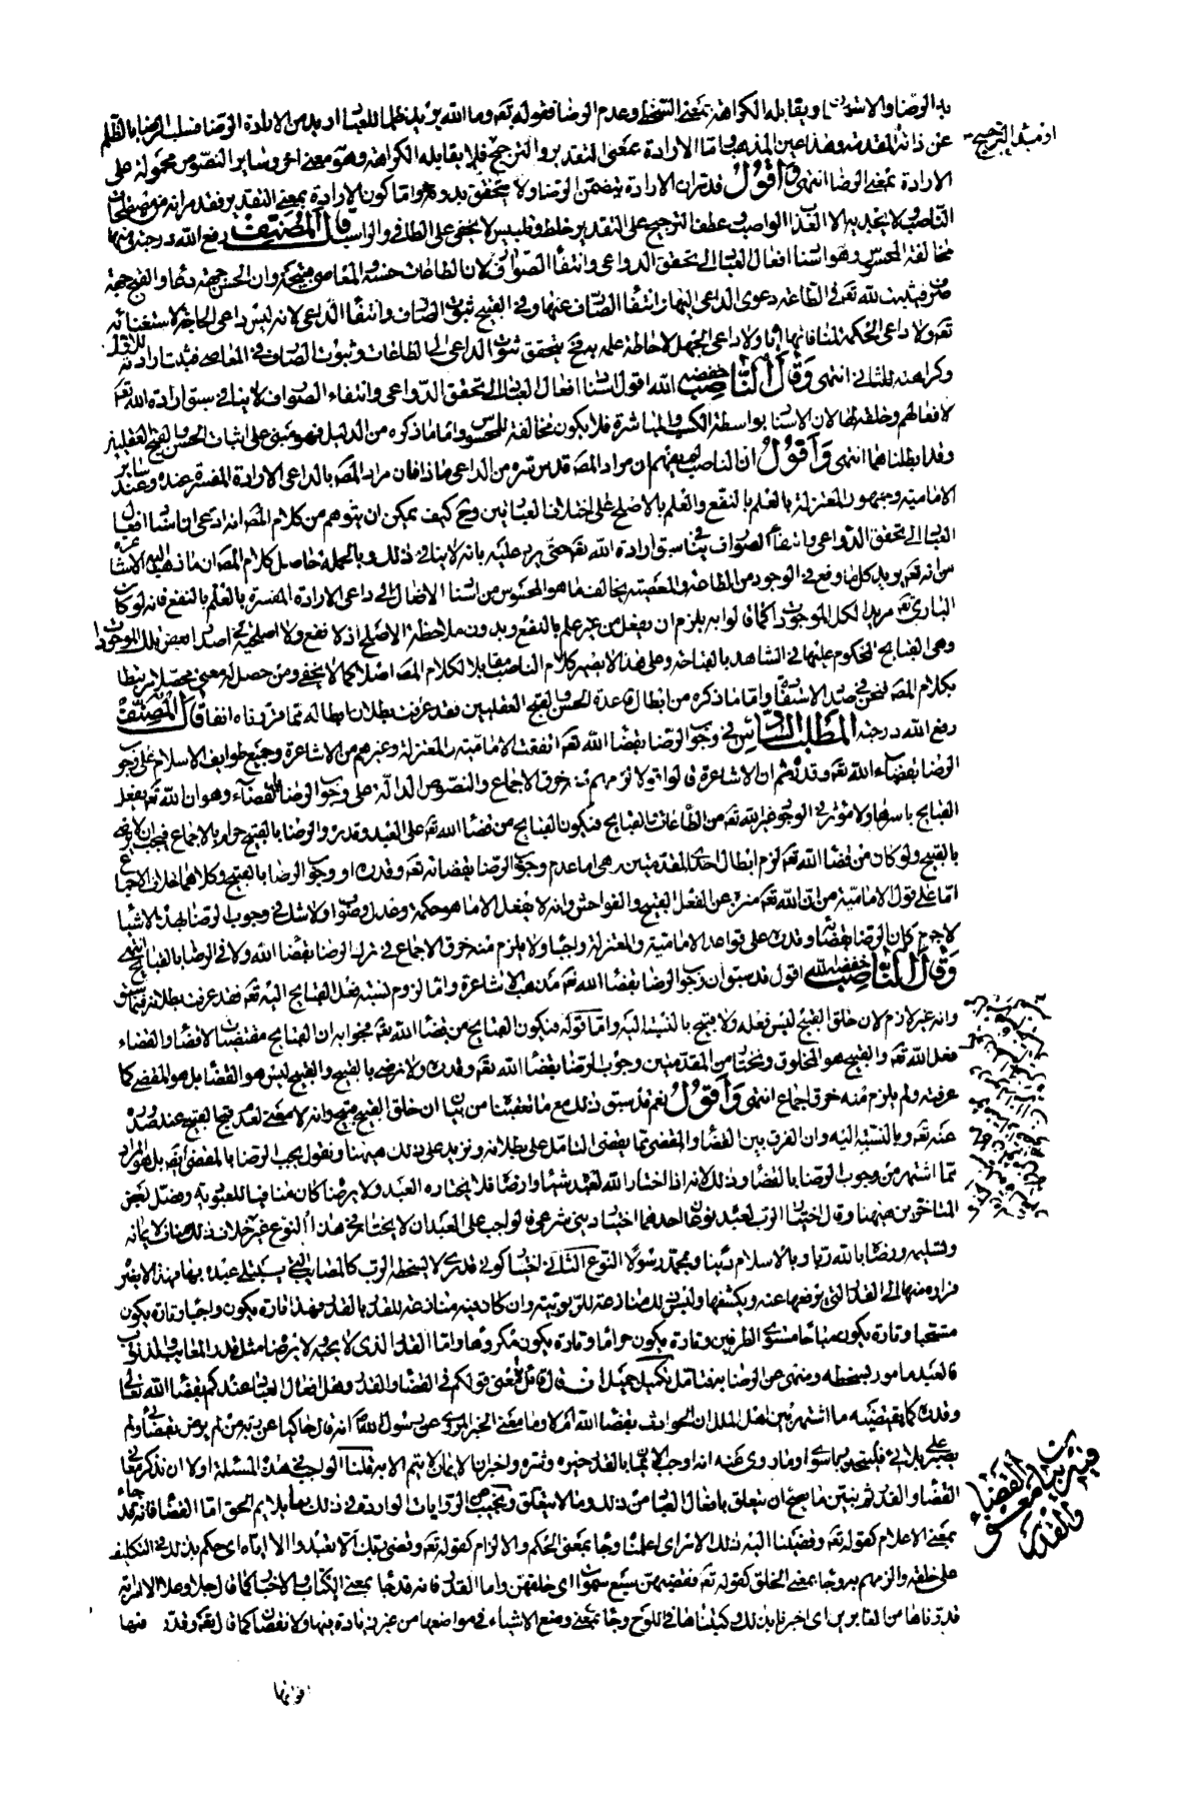 به الرضا والاستحسان ويقابله الكراهة بمعنى السخط وعدم الرضا فقوله تعه وما الله يريد ظلما للعباد اريد من الارادة الرضا فسلب الرضا بالظلم
عن ذاته المقدسة وهذا عين المذهب واما الارادة بمعنى التقدير والترجيح فلا يقابله الكراهة وهو معنى اخر وساير النصوص محمولة على
الارادة بمعنى الرضا انتهى واقول قد مر ان الارادة يتضمن الرضا ولا يتحقق بدونه واما كون الارادة بمعنى التقدير فقد مر انه من مصطلحات
الناصب لا يجد به الا العذاب الواصب وعطف الترجيح على التقدير خلط وتلبيس لا يخفى على الطالب والراسب قال المصنف رفع الله درجته ومنها
مخالفة المحسوس وهو استناد افعال العباد الى تحقق الدواعى وانتفاء الصوارف لان الطاعات حسنة والمعاصى قبيحة وان الحسن جهة دعاء والقبح جهة
صرف فيثبت لله تعه في الطاعة دعوى الداعى اليها وانتفاء الصارف عنها وفي القبيح ثبوت الصارف وانتفاء الداعى لانه ليس داعى الحاجة لاستغنائه
تعه ولا داعى الحكمة لمنافاتها اياه ولا داعى الجهل لاحاطة علمه به فح يتحقق ثبوت الداعى الى الطاعات وثبوت الصارف في المعاصى فثبت ارادته للاول
وكراهته للثانى انتهى وقال الناصب خفضه الله اقول استناد افعال العباد الى تحقق الدواعى وانتفاء الصوارف لا ينافى سبق ارادة الله تعه
لافعالهم وخلقه لها لان الاستناد بواسطة الكسب والمباشرة فلا يكون مخالفة للمحسوس واما ما ذكره من الدليل فهو مبنى على اثبات الحسن والقبح العقليين
وقد ابطلناهما انتهى واقول ان الناصب لم يفهم ان مراد المصه قدس سره من الداعى ماذا فان مراد المصه بالداعى الارادة المفسرة عنده وعند ساير
الامامية وجمهور المعتزلة بالعلم بالنفع والعلم بالاصلح على اختلاف العبارتين وح كيف يمكن ان يتوهم من كلام المصه انه ادعى ان استناد افعال
العباد الى تحقق الدواعى وانتفاء الصوارف ينافى سبق ارادة الله تعه حتى يرد عليه بانه لا ينافى ذلك وبالجملة حاصل كلام المصه ان ما ذهب اليه الاشاعرة
من انه تعه يريد كل ما وقع في الوجود من الطاعة والمعصية يخالف ما هو المحسوس من استناد الافعال الى داعى الارادة المفسرة بالعلم بالنفع فانه لو كان
البارى تعه مريدا لكل الموجودات كما قالوا به يلزم ان يفعل من غير علم بالنفع وبدون ملاحظة الاصلح اذ لا نفع ولا اصلحية في اصدار بعض تلك الموجودات
وهى القبايح المحكوم عليها في الشاهد بالقباحة وعلى هذا لا يصير كلام الناصب مقابلا لكلام المصه اصلا كما لا يخفى ومن حصل له معنى محصلا مرتبطا
بكلام المصه فنحن في صدد الاستفادة واما ما ذكره من ابطال قاعدة الحسن والقبح العقليين فقد عرفت بطلان ابطاله بما قررناه انفا قال المصنف
رفع الله درجته المطلب السادس في وجوب الرضا بقضاء الله تعه اتفقت الامامية والمعتزلة وغيرهم من الاشاعرة وجميع طوايف الاسلام على وجوب
الرضا بقضاء الله تعه وقدره ثم ان الاشاعرة قالوا قولا لزمهم منه خرق الاجماع والنصوص الدالة على وجوب الرضا بالقضاء وهو ان الله تعه يفعل
القبايح باسرها ولا مؤثر في الوجود غير الله تعه من الطاعات والقبايح فتكون القبايح من قضاء الله تعه على العبد وقدره والرضا بالقبيح حرام بالاجماع فيجب ان لا يرضى
بالقبيح ولو كان من قضاء الله تعه لزم ابطال احدى المقدمتين وهى اما عدم وجوب الرضا بقضائه تعه وقدره او وجوب الرضا بالقبيح وكلاهما خلاف الاجماع
اما على قول الامامية من ان الله تعه منزه عن الفعل القبيح والفواحش وانه لا يفعل الا ما هو حكمة وعدل وصواب ولا شك في وجوب الرضا بهذه الاشياء
لا جرم كان الرضا بقضائه وقدره على قواعد الامامية والمعتزلة واجبا ولا يلزم منه خرق الاجماع في ترك الرضا بقضاء الله ولا في الرضا بالقبايح انتهى
وقال الناصب خفضه الله اقول قد سبق ان وجوب الرضا بقضاء الله تعه مذهب الاشاعرة واما لزوم نسبة فعل القبايح اليه تعه فقد عرفت بطلانه فيما سبق
وانه غير لازم لان خلق القبيح ليس فعله ولا قبيح بالنسبة اليه واما قوله فتكون القبايح من قضاء الله تعه فجوابه ان القبايح مقتضيات لا قضاء والقضاء
فعل الله تعه والقبيح هو المخلوق ونختار من المقدمتين وجوب الرضا بقضاء الله تعه وقدره ولا نرضى بالقبيح والقبيح ليس هو القضاء بل هو المقضى كما
عرفته ولم يلزم منه خرق اجماع انتهى واقول نعم قد سبق ذلك مع ما تعقبناه من بيان ان خلق القبيح قبيح وانه لا معنى لعد قبح القبيح عند صدوره
عنه تعه وبالنسبة اليه وان الفرق بين القضاء والمقضى مما يقضى التامل على بطلانه ونزيد على ذلك ههنا ونقول يجب الرضا بالمقضى ايضا بل هو المراد
مما اشتهر من وجوب الرضا بالقضاء وذلك لانه اذا اختار الله لعبد شيئا وارضاه فلا يختاره العبد ولا يرضاه كان منافيا للعبودية وفصل بعض
المتاخرين ههنا وقال اختيار الرب لعبده نوعان احدهما اختيار دينى شرعى فالواجب على العبد ان لا يختار في هذا النوع غير خلاف ذلك مناف لايمانه
وتسليمه ورضاه بالله ربا وبالاسلام دينا وبمحمد رسولا النوع الثانى اختيار كونى قدرى لا يسخطه الرب كالمصايب التى يبتلى عبده بها فهذا لا يضر
فراره منها الى القدر التى يرفعها عنه ويكشفها وليس في ذلك منازعة للربوبية وان كان فيه منازعة للقدر بالقدر وهذا تارة يكون واجبا وتارة يكون
مستحبا وتارة يكون مباحا مستوى الطرفين وتارة يكون حراما وتارة يكون مكروها واما القدر الذى لا يحبه ولا يرضاه مثل قدر المعايب والذنوب
فالعبد مامور بسخطه ومنهى عن الرضا به فتامل تكميل جميل ان قال قائل فما معنى قولكم في القضاء والقدر وهل افعال العباد عندكم بقضاء الله تعالى
وقدره كما يقتضيه ما اشتهر بين اهل الملل ان الحوادث بقضاء الله ام لا وما معنى الخبر المروى عن رسول الله انه قال حاكيا عن ربه من لم يرض بقضائى ولم
يصبر على بلائى فليتخذ ربا سوائى وما روى عنه انه اوجب الايمان بالقدر خيره وشره واخبر ان الايمان لا يتم الا به قلنا الواجب في هذه المسئلة اولا ان نذكر معانى
القضاء والقدر ثم نبين ما يصح ان يتعلق بافعال العباد من ذلك وما لا يتعلق ونجيب عن الروايات الواردة في ذلك بما يلايم الحق اما القضاء فانه قد جاء
بمعنى الاعلام كقوله تعه وقضينا اليه ذلك الامر اى اعلمناه وجاء بمعنى الحكم والالزام كقوله تعه وقضى ربك الا تعبدوا الا اياه اى حكم بذلك في التكليف
على خلقه والزمهم به وجاء بمعنى الخلق كقوله تعه فقضيهن سبع سموات اى خلقهن واما القدر فانه قد جاء بمعنى الكتاب والاخبار كما قال جل وعلا الا امراته
قدرناها من الغابرين اى اخبرنا بذلك وكتبناها في اللوح وجاء بمعنى وضع الاشياء في مواضعها من غير زيادة فيها ولا نقصان كما قال تعه وقدر فيها
اقواتها
او نبذ الترجيح
في تحقيق معنى القضاء والقدر